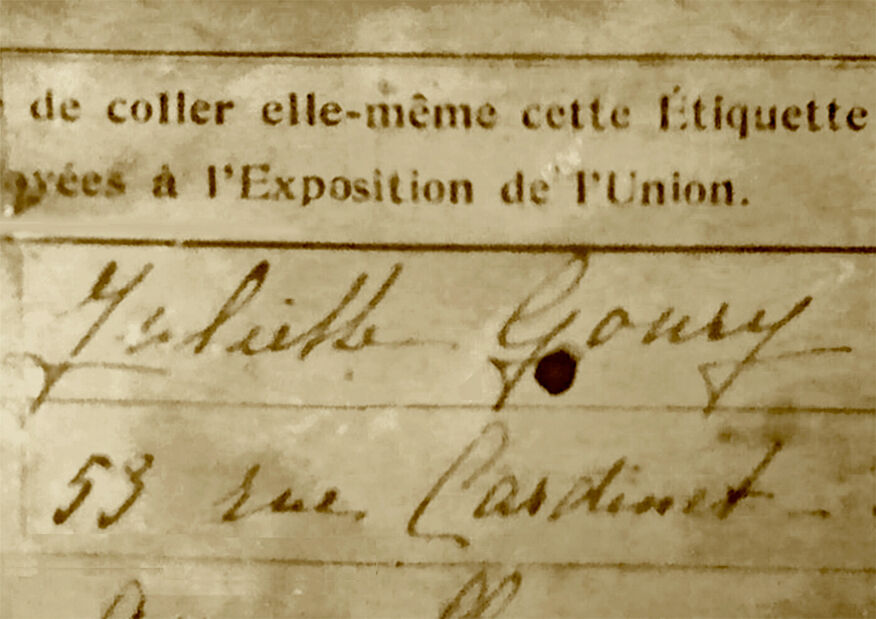 de coller elle-même cette Étiquette
oyées à l'Exposition de l'Union.
Juliette Goury
53 rue Cardinet